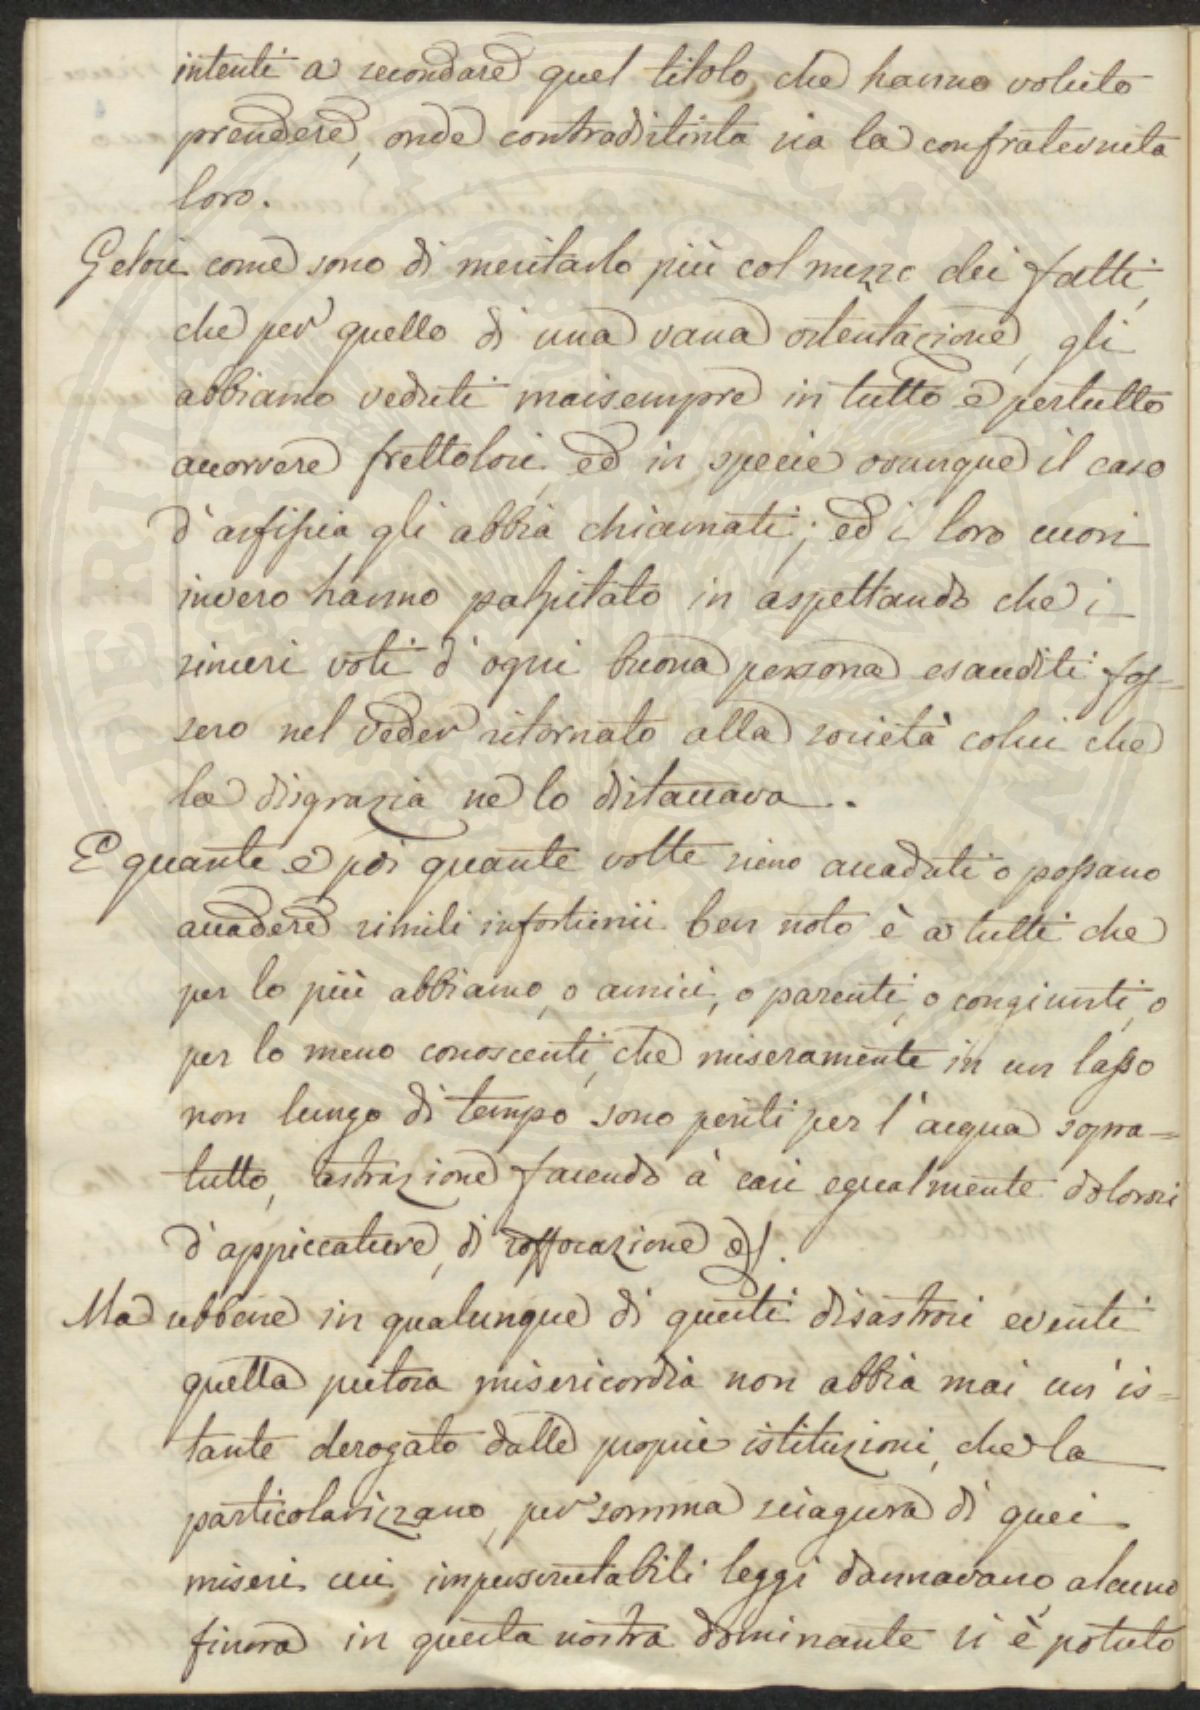 intenti a secondare quel titolo, che hanno voluto
prendere, onde contradistinta sia la confraternita
loro.
Gelosi come sono di meritarlo più col mezzo dei fatti,
che per quello di una vana ostentazione, gli
abbiamo veduti maisempre in tutto e pertutto
accorrere frettolosi, ed in specie ovunque il caso
d'asfissia gli abbia chiamati; ed i loro cuori
invero hanno palpitato in aspettando che i
sinceri voti d'ogni buona persona esauditi fos-
sero nel veder ritornato alla società colui che
la disgrazia ne lo distaccava.
E quante e poi quante volte sieno accaduti o possano
accadere simili infortunii ben noto è a tutti che
per lo più abbiamo, o amici, o parenti, o congiunti, o
per lo meno conoscenti, che miseramente in un lasso
non lungo di tempo sono periti per l'acqua sopra=
tutto, astrazione facendo a' casi egualmente dolorosi
d'appiccature, di soffocazione &.
Ma sebbene in qualunque di questi disastrosi eventi
quella pietosa misericordia non abbia mai un'is=
tante derogato dalle proprie istituzioni, che la
particolarizzano, per somma sciagura di quei
miseri cui imperscrutabili leggi dannavano, alcuno
finora in questa nostra dominante si è potuto